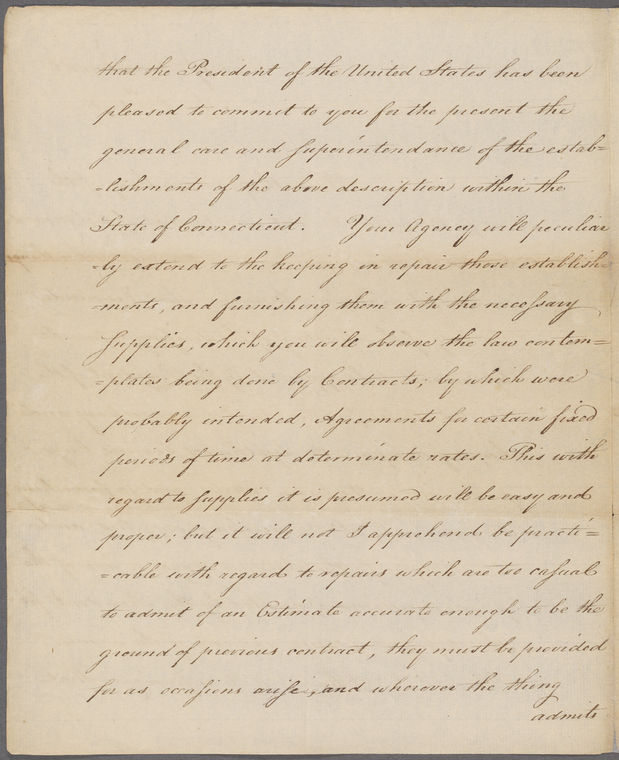 that the President of the United States has been
pleased to commit to you for the present the
general care and Superintendance of the estab=
=lishments of the above description within the
State of Connecticut. Your Agency will peculiar
=ly extend to the keeping in repair those establish=
=ments, and furnishing them with the necessary
Supplies, which you will observe the law contem=
=plates being done by Contracts; by which were
probably intended, Agreements for certain fixed
periods of time at determinate rates. This with
regard to Supplies it is presumed will be easy and
proper; but it will not I apprehend be practi=
=cable with regard to repairs which are too casual
to admit of an Estimate accurate enough to be the
ground of previous contract, they must be provided
for as occasions arise, and wherever the thing
admits